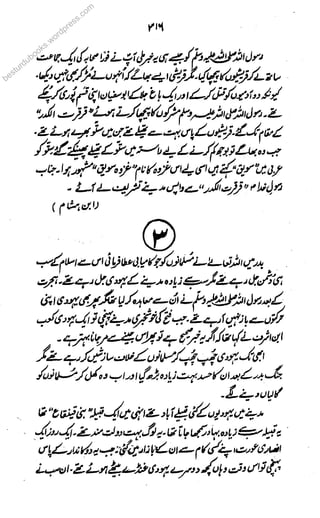 besturdubooks.wordpress.com
۲۱۶
رسول اللہ صلی اللہ علیہ وسلم کو جیسے ہی یہ خبر ملی آپ نے فوراً صحابہ کی ایک جماعت
ساتھ لے کر قریشیوں کا پیچھا کیا، مگر قریشی ایسے بھاگے کہ انہوں نے مڑ کر بھی نہیں دیکھا،
کیونکہ دو آدمیوں کو قتل کر کے اور ایک باغ جلا کے ابو سفیان اپنی قسم پوری کر چکے
تھے۔ رسول اللہ صلی اللہ علیہ وسلم مشرکوں کا پیچھا کرتے ہوئے "قرقرت الکدر"
کے مقام تک گئے۔ قریشیوں کے پاس بہت سے تھیلے تھے جن میں ستّو بھرے ہوئے تھے۔
جب وہ بھاگے تو بوجھ کم کرنے کے لیے راستہ میں ستّو کے تھیلے پھینکتے گئے ستّو کو
عربی میں "سویق" کہتے ہیں اسی لیے اس غزوہ کا نام "غزوہ سویق" مشہور ہوا۔ جناب
رسولِ خدا ؐ "قرقرت الکدر" سے واپس مدینے تشریف لے آئے۔
(ابن ہشام)
۳
بدر میں اللہ تعالٰے نے مسلمانوں کو جو کامیابی عطا فرمائی اس سے اسلام کے سب
ہی دشمن جل رہے تھے مگر سب سے زیادہ مدینے کے یہودی جل رہے تھے۔ ہجرت
کے بعد رسول اللہ صلی اللہ علیہ وسلم نے اُن سے معاہدہ کر لیا تھا مگر پھر بھی یہودی اپنی
حرکتوں سے باز نہیں آ رہے تھے، جب فتح کی خوشخبری مدینے پہنچی تو ایک یہودی کعب
ابن اشرف نے کہا تھا کہ اگر یہ خبر صحیح ہے تو پھر اس جینے سے مر جانا بہتر ہے۔
ابھی تک یہودی چھپ چھپ کر مسلمانوں کے خلاف سازشیں کر رہے تھے مگر
جنگ بدر کے بعد ان کا حسد بہت زیادہ بڑھ گیا اور اب وہ کھل کر مسلمانوں کو
گالیاں دینے لگے۔
مدینے میں یہودیوں کے کئی قبیلے آباد تھے انہی میں ایک قبیلہ "بنی قینقاع" تھا
یہ قبیلہ سب سے زیادہ بہادر سمجھا جاتا تھا۔ یہ لوگ بہت دولت مند تھے۔ ایک روز ایک
انصاری عورت اپنے کسی کام سے ان کے بازار میں گئی، جب یہ دوکاندار کے پاس
پہنچی تو اس وقت وہاں کچھ دوسرے یہودی غنڈے بیٹھے ہوئے تھے۔ ان سب نے